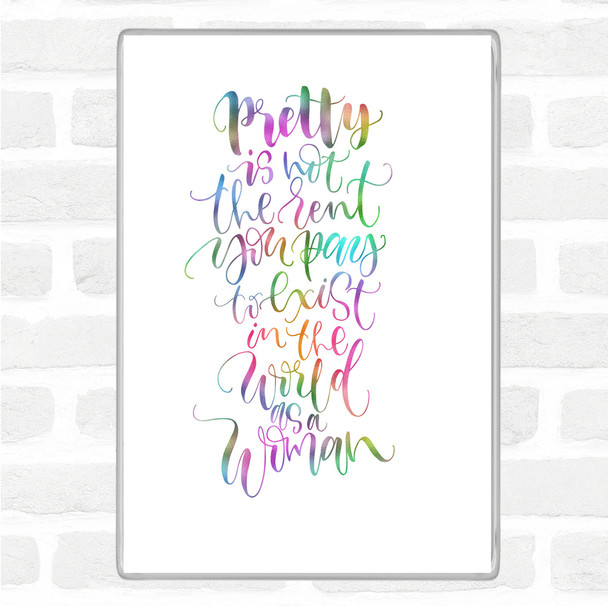 Pretty
is not
the rent
you pay
to exist
in the
World
as a
Woman